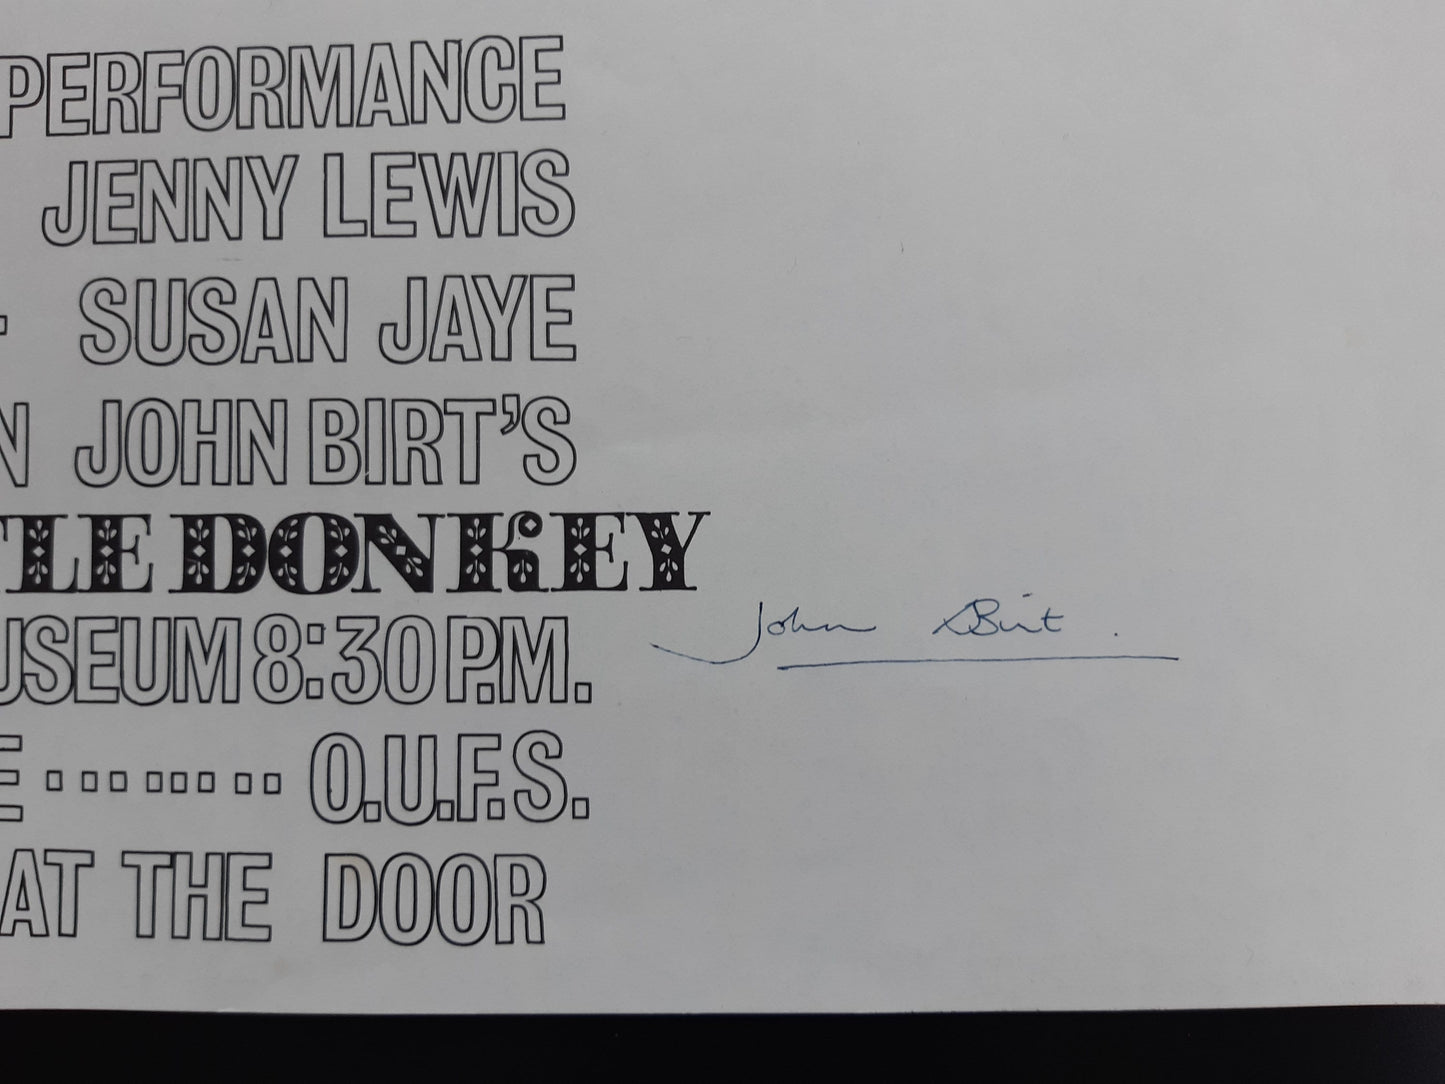 PERFORMANCE
JENNY LEWIS
SUSAN JAYE
N JOHN BIRT'S
TLE DONKEY
USEUM 8:30 P.M.
E ......... O.U.F.S.
AT THE DOOR
John Birt.